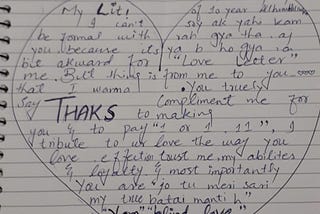 My Lit! of 10 year
I can't say ak yahi kam
be formal with rah gya tha. ay
you because its ya b ho gya. a
bit akward for "Love Letter"
me. But thing is from me to you
that I wanna You truely
say THAKS Compliment me for
to making
you & to pay "1 or 1 . 11", I
tribute to ur love the way you
love . effection trust me, my abilites
& loyalty & most importantly
You are "jo tu meri sari
my true batai manti h"
"blind love"